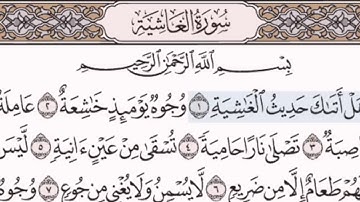 سُورَةُ الْغَاشِيَةِ
بِسْمِ اللَّهِ الرَّحْمَٰنِ الرَّحِيمِ
أَتَىٰكَ حَدِيثُ الْغَٰشِيَةِ ١ وُجُوهٌ يَوْمَئِذٍ خَٰشِعَةٌ ٢ عَامِلَةٌ
٣ تَصْلَىٰ نَارًا حَامِيَةً ٤ تُسْقَىٰ مِنْ عَيْنٍ ءَانِيَةٍ ٥ لَّيْسَ
طَعَامٌ إِلَّا مِن ضَرِيعٍ ٦ لَّا يُسْمِنُ وَلَا يُغْنِي مِن جُوعٍ ٧ وُجُوهٌ